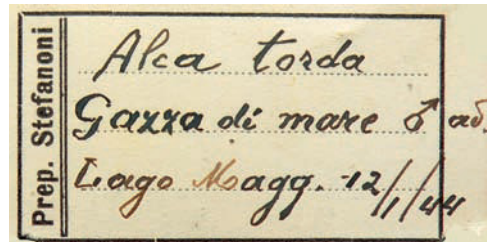 Prep. Stefanoni
Alca torda
Gazza di mare ♂ ad.
Lago Magg. 12/1/44